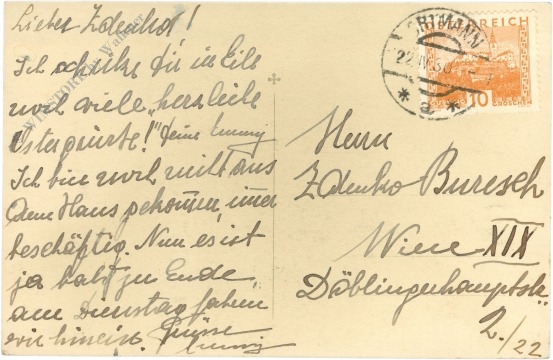 Lieber Zdenko!
Ich schicke dir in Eile
noch viele „herzliche
Ostergrüsse!" Deine
Ich bin noch nicht aus
dem Haus gekommen, immer
beschäftigt. Nun es ist
ja bald zu Ende.
am Dienstag fahren
wir hinein. Grüsse
ORTMANN
22.IV.30
* a *
ÖSTERREICH
10
GROSCHEN
Herrn
Zdenko Buresch
Wien XIX
Döblingerhauptstr.
2./22